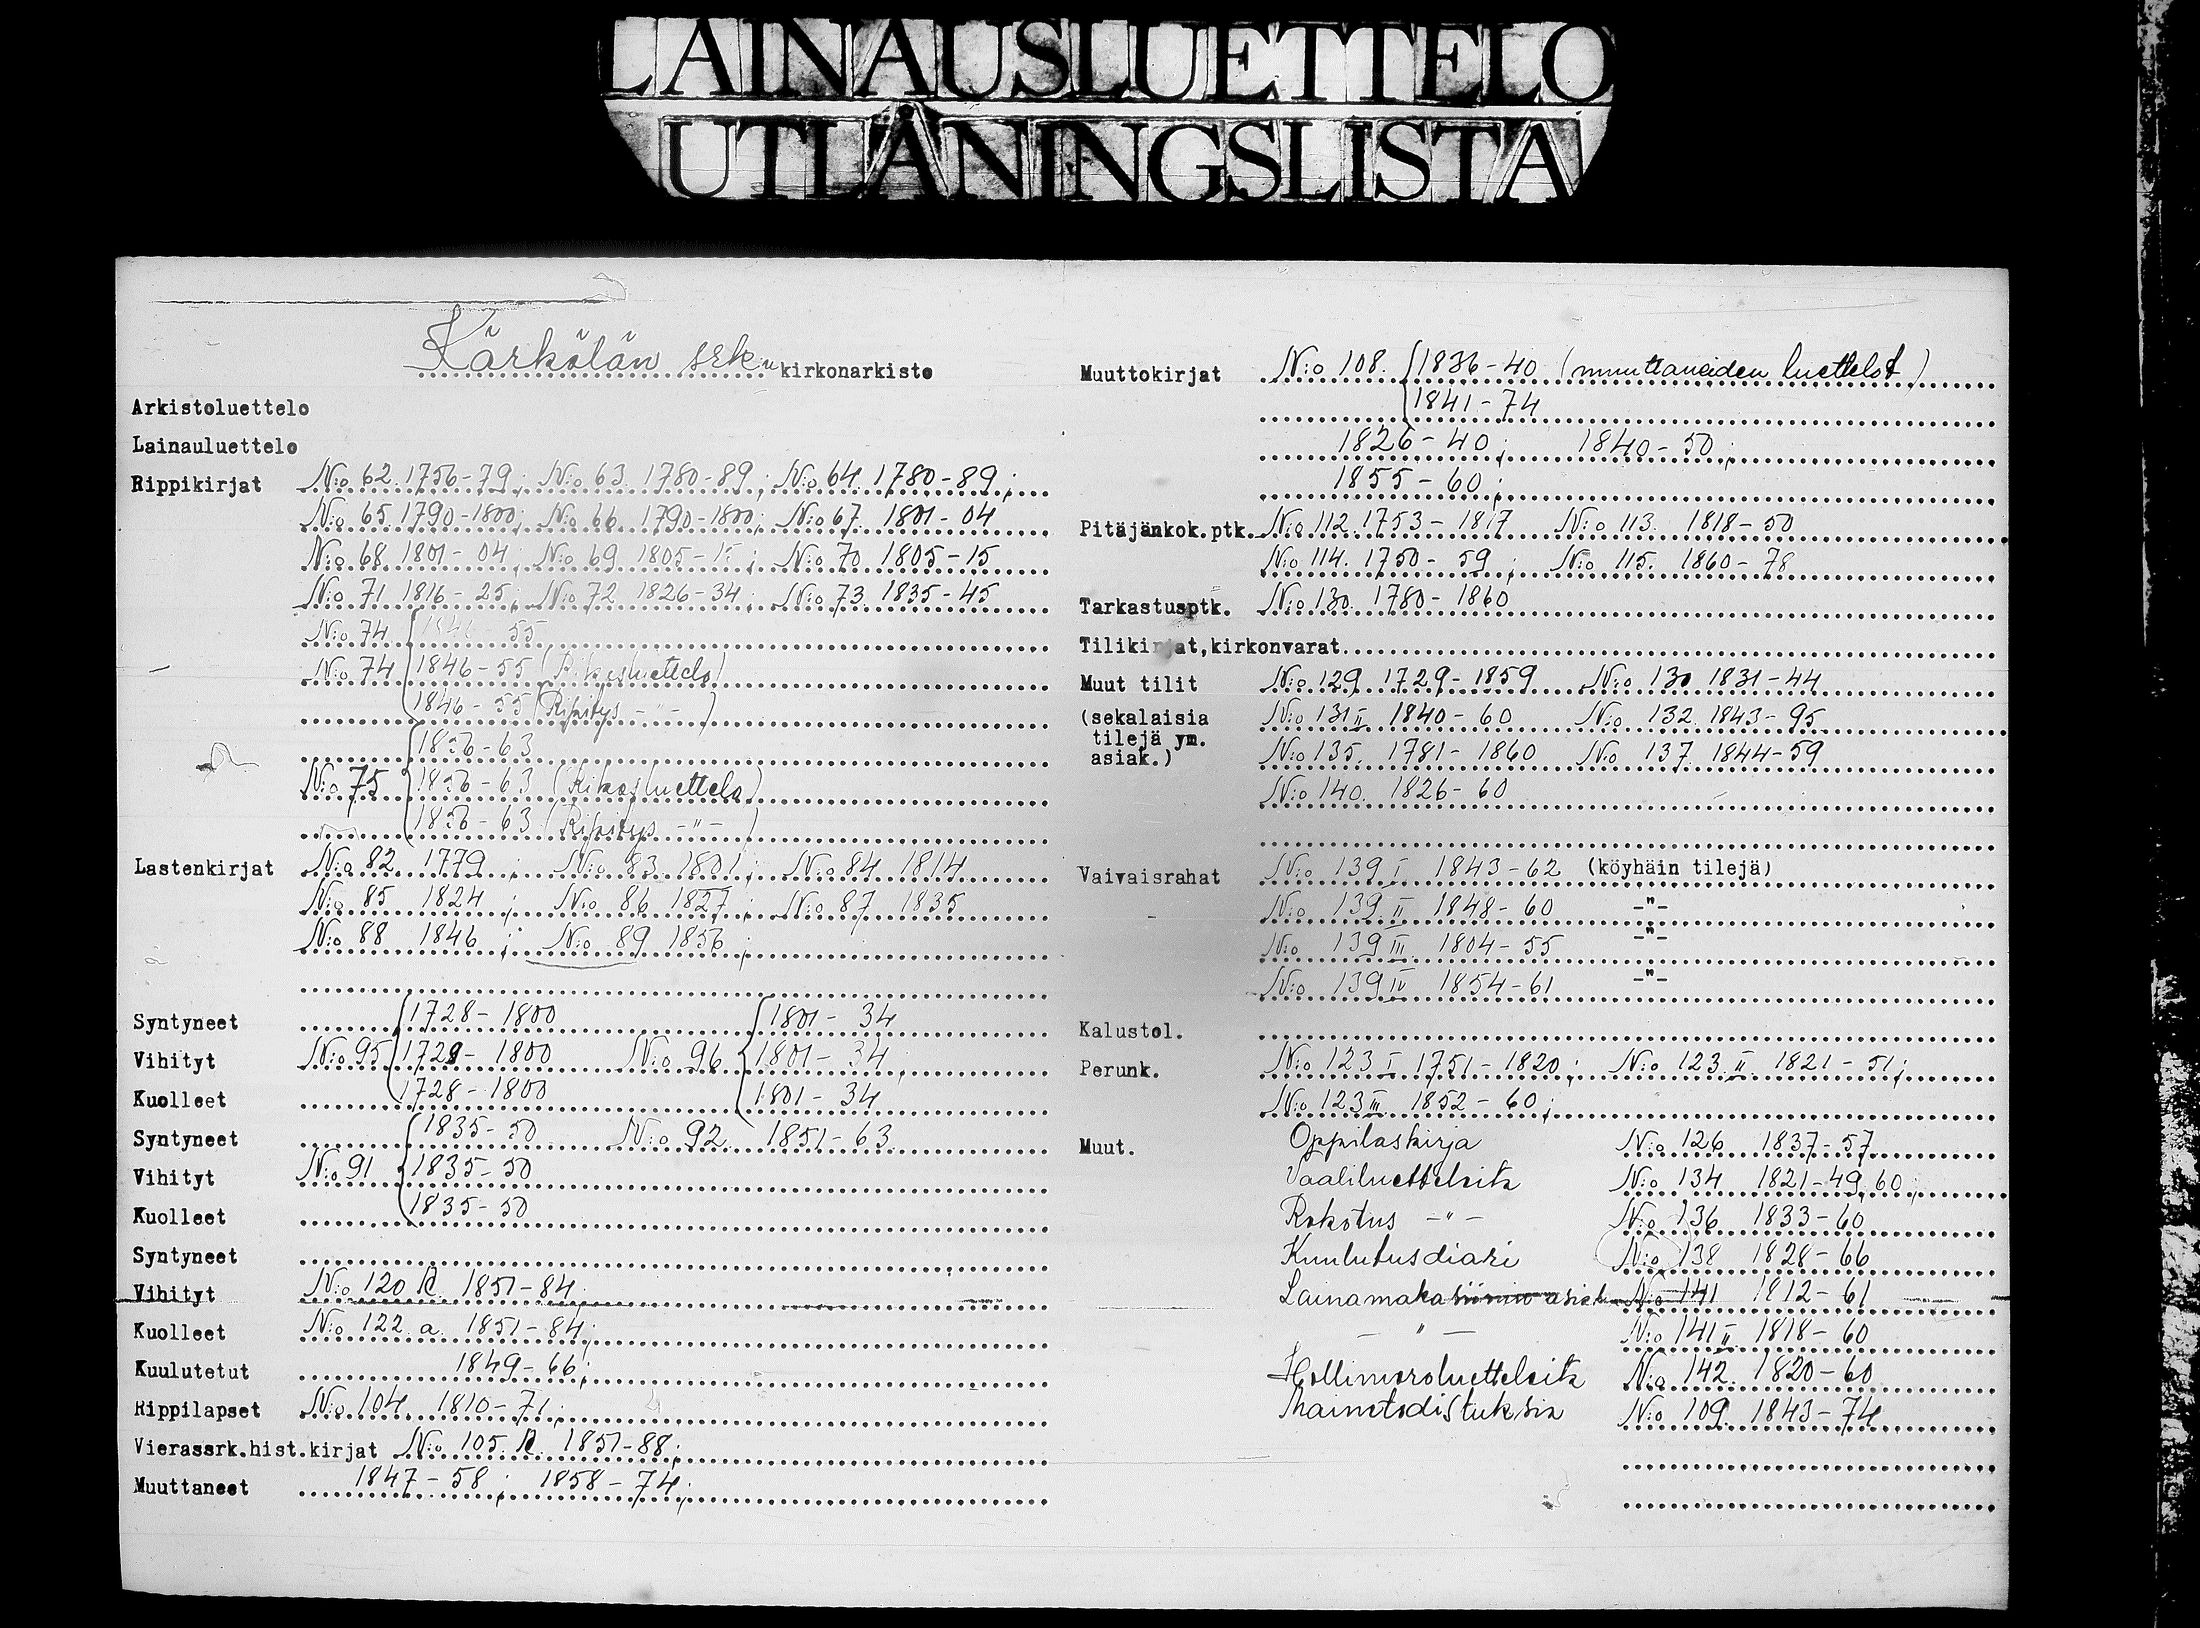 LAINAUSLUETTELO
UTLÅNINGSLISTA
Kärkölän srk:n kirkonarkisto
Arkistoluettelo
Lainauluettelo
Rippikirjat N:o 62. 1756-79; N:o 63. 1780-89; N:o 64. 1780-89;
N:o 65. 1790-1800; N:o 66. 1790-1800; N:o 67. 1801-04
N:o 68 1801-04; N:o 69 1805-15; N:o 70 1805-15
N:o 71 1816-25; N:o 72 1826-34; N:o 73. 1835-45
N:o 74 1846-55
N:o 74 1846-55 (Rikosluettelo)
1846-55 (Ripitys -"-)
1856-63
N:o 75 1856-63 (Rikosluettelo)
1856-63 (Ripitys -"-)
Lastenkirjat N:o 82 1779; N:o 83 1801; N:o 84 1814
N:o 85 1824; N:o 86 1827; N:o 87 1835
N:o 88 1846; N:o 89 1856;
Syntyneet 1728-1800 1801-34
Vihityt N:o 95 1729-1800 N:o 96 1801-34,
Kuolleet 1728-1800 1801-34
Syntyneet 1835-50 N:o 92 1851-63
Vihityt N:o 91 1835-50
Kuolleet 1835-50
Syntyneet
Vihityt N:o 120 1851-84
Kuolleet N:o 122 a 1851-84;
Kuulutetut 1849-66;
Rippilapset N:o 104. 1810-71;
Vierassrk.hist.kirjat N:o 105. 1851-88;
Muuttaneet 1847-58; 1858-74;
Muuttokirjat N:o 108. 1836-40 (muuttaneiden luettelot)
1841-74
1826-40; 1840-50;
1855-60;
Pitäjänkok.ptk. N:o 112. 1753-1817 N:o 113. 1818-50
N:o 114. 1750-59; N:o 115. 1860-78
Tarkastusptk. N:o 130. 1780-1860
Tilikirjat,kirkonvarat.
Muut tilit N:o 129 1729-1859 N:o 130 1831-44
(sekalaisia N:o 131 II 1840-60 N:o 132. 1843-95
tilejä ym.
asiak.) N:o 135. 1781-1860 N:o 137 1844-59
N:o 140. 1826-60
Vaivaisrahat N:o 139 I 1843-62 (köyhäin tilejä)
N:o 139 II 1848-60 -"-
N:o 139 III 1804-55 -"-
N:o 139 IV 1854-61 -"-
Kalustol.
Perunk. N:o 123 I 1751-1820; N:o 123 II 1821-51;
N:o 123 III 1852-60;
Muut. Oppilaskirja N:o 126 1837-57
Vaaliluetteloita N:o 134 1821-49,60;
Rokotus -"- N:o 136 1833-60
Kuulutusdiari N:o 138 1828-66
Lainamakasiinin asiak. N:o 141 1812-61
-"- N:o 141 II 1818-60
Hollimroluetteloita N:o 142. 1820-60
Mainetodistuksia N:o 109. 1843-74